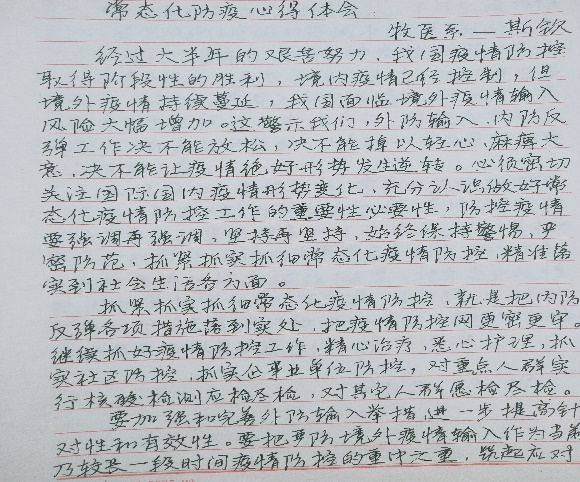 常态化防疫心得体会
牧医系——斯钦
经过大半年的艰苦努力，我国疫情防控
取得阶段性的胜利，境内疫情已经控制，但
境外疫情持续蔓延，我国面临境外疫情输入
风险大幅增加。这警示我们，外防输入、内防反
弹工作决不能放松，决不能掉以轻心、麻痹大
意，决不能让疫情绝好形势发生逆转。必须密切
关注国际国内疫情形势变化，充分认识做好常
态化疫情防控工作的重要性必要性，防控疫情
要强调再强调，坚持再坚持，始终保持警惕，严
密防范，抓紧抓实抓细常态化疫情防控，精准落
实到社会生活各方面。
抓紧抓实抓细常态化疫情防控，就是把内防
反弹各项措施落到实处，把疫情防控网更密更牢。
继续抓好疫情防控工作，精心治疗，悉心护理，抓
实社区防控，抓实企事业单位防控，对重点人群实
行核酸检测应检尽检，对其它人群愿检尽检。
要加强和完善外防输入举措，进一步提高针
对性和有效性。要把严防境外疫情输入作为当前
乃较长一段时间疫情防控的重中之重，筑起应对